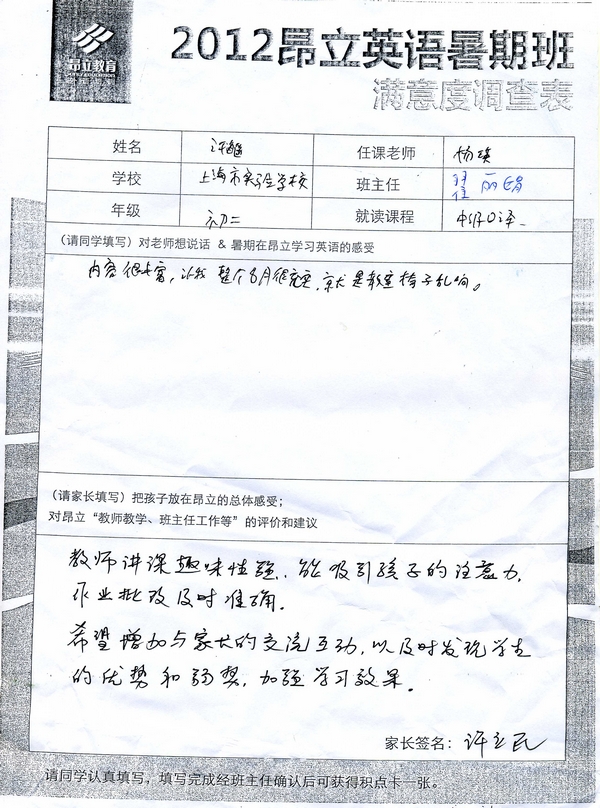 昂立教育
2012昂立英语暑期班
满意度调查表
姓名 任课老师 杨瑛
学校 上海市实验学校 班主任 丽娟
年级 初二 就读课程 中级口译
（请同学填写）对老师想说话 & 暑期在昂立学习英语的感受
内容很丰富，让我整个8月很充实，就是教室椅子乱响。
（请家长填写）把孩子放在昂立的总体感受；
对昂立“教师教学、班主任工作等”的评价和建议
教师讲课趣味性强，能吸引孩子的注意力，
作业批改及时准确。
希望增加与家长的交流互动，以及时发现学生
的优势和弱势，加强学习效果。
家长签名：许立民
请同学认真填写，填写完成经班主任确认后可获得积点卡一张。